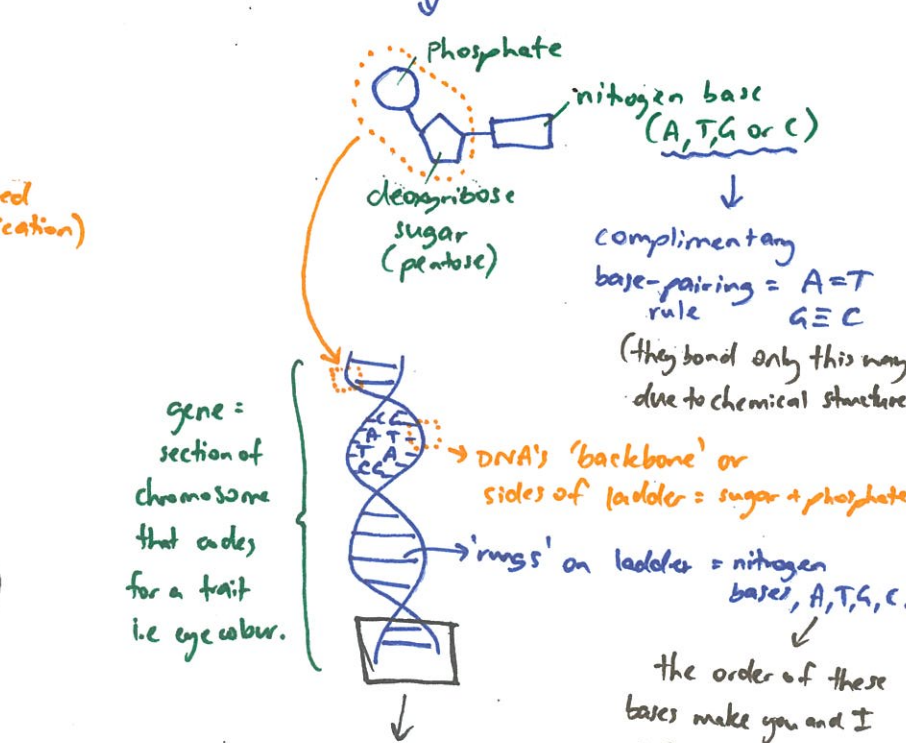 Phosphate
nitrogen base
(A,T,G or C)
deoxyribose
sugar
(pentose)
ed
ication)
complimentary
base-pairing = A=T
rule G≡C
(they bond only this way
due to chemical structure
gene =
section of
chromosome
that codes
for a trait
i.e eye colour.
CG
A T
T A
CG
DNA's 'backbone' or
sides of ladder = sugar + phosphate
'rungs' on ladder = nitrogen
bases, A,T,G,C.
the order of these
bases make you and I